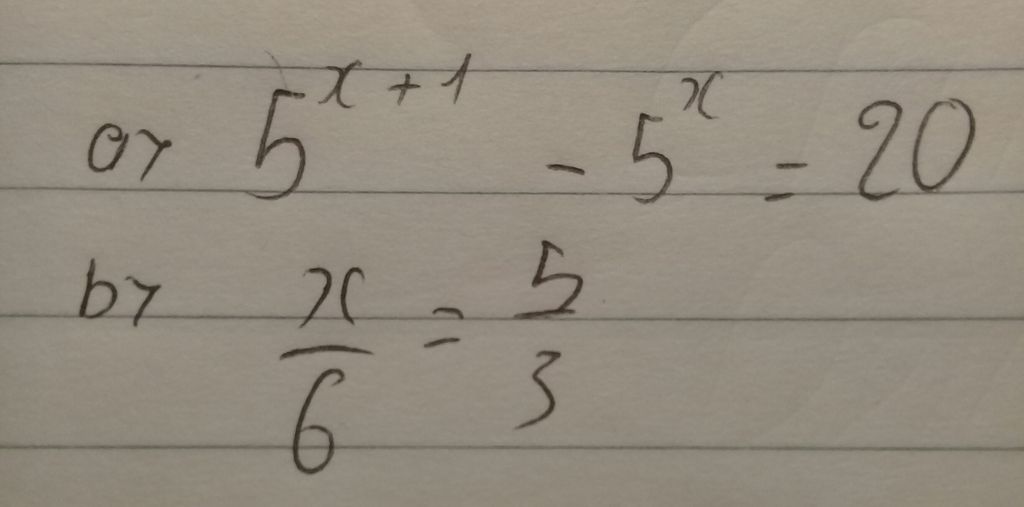 a) 5^{x+1} - 5^x = 20
b) x/6 = 5/3